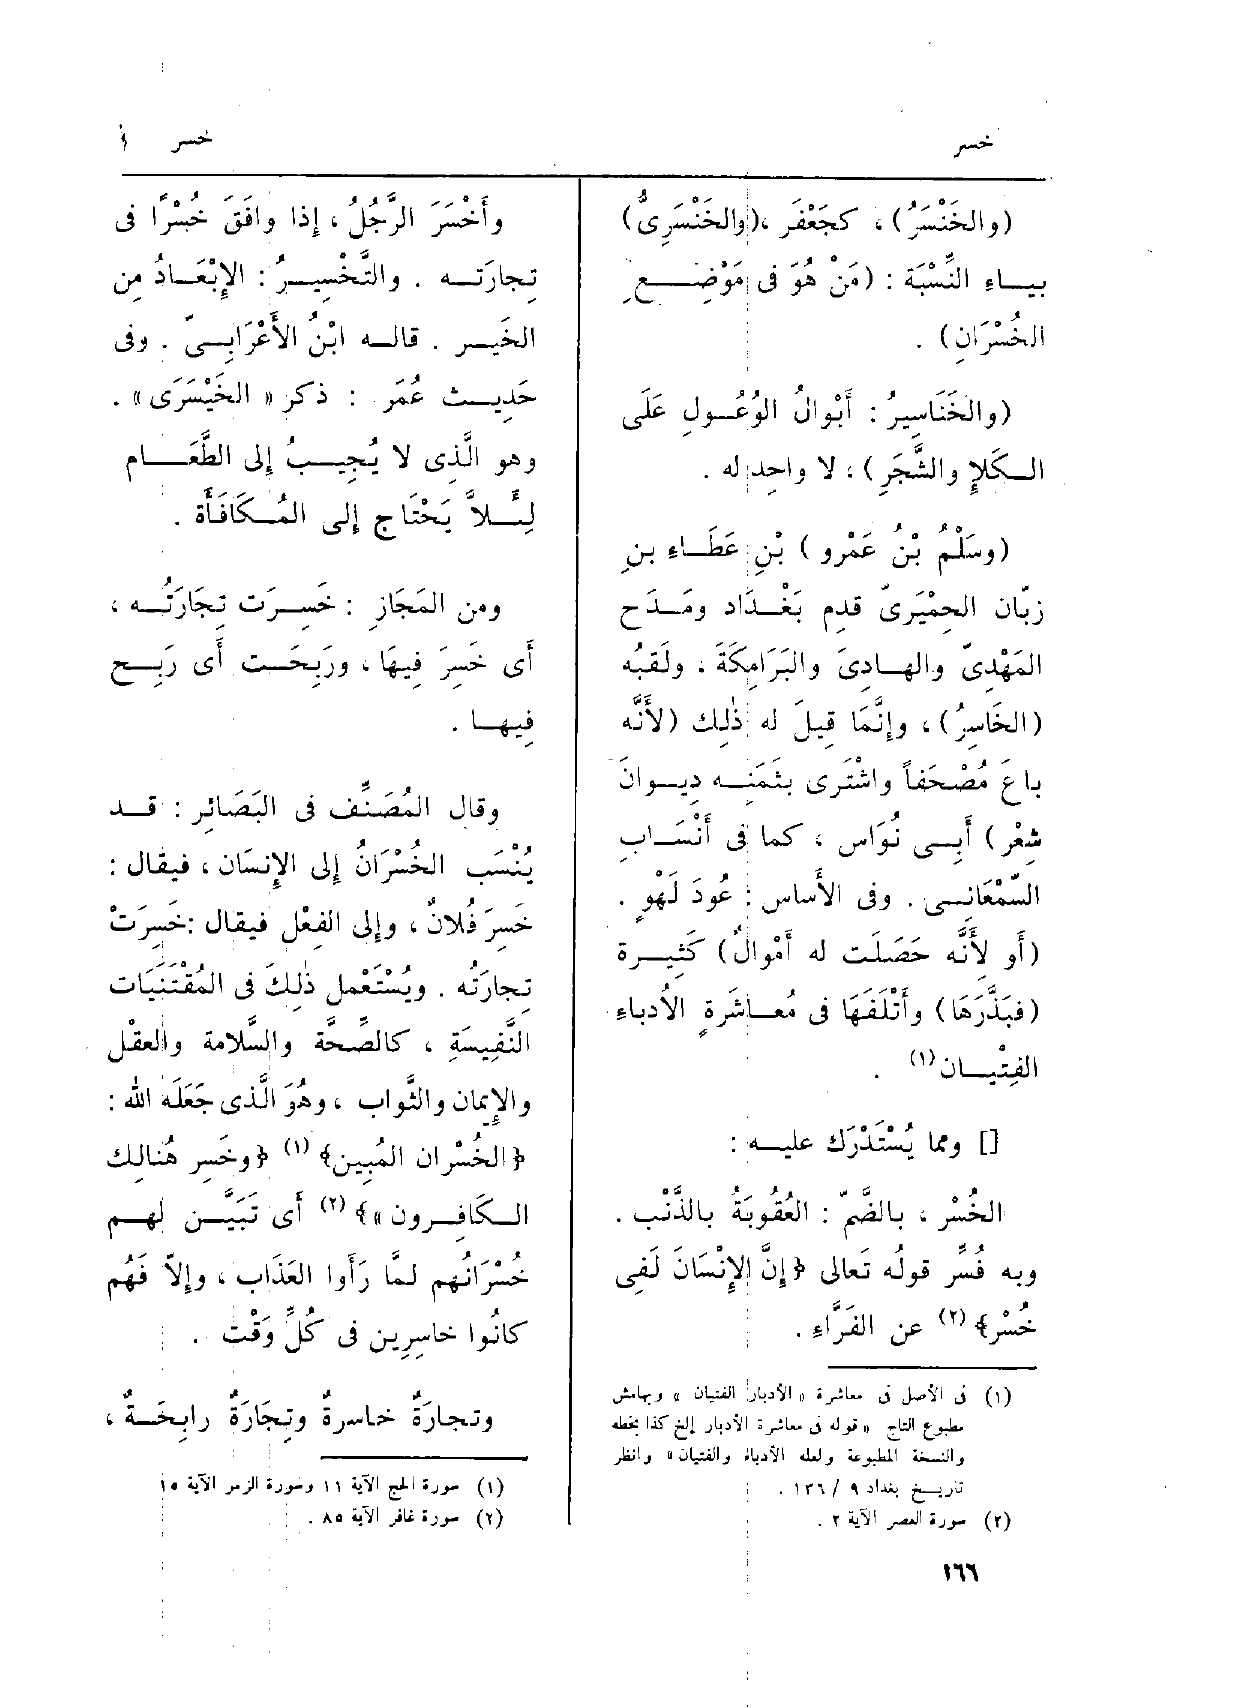 خسر
خسر
(والخَنْسَرُ) ، كجَعْفَر ،(والخَنْسَرِىُّ)
بيـاءِ النِّسْبَة : (مَنْ هُوَ فى مَوْضِـعِ
الخُسْرَانِ) .
(والخَنَاسِيرُ : أَبْوالُ الوُعُـولِ عَلَى
الـكَلإِ والشَّجَرِ) ، لا واحِدَ له .
(وسَلْمُ بْنُ عَمْرو) بْنِ عَطَـاءِ بنِ
زبّان الحِمْيَرىّ قدِم بَغْـدَاد ومَـدَح
المَهْدِىّ والهـادِىَ والبَرَامِكَةَ ، ولَقبُه
(الخَاسِرُ) ، وإِنَّمَا قِيلَ له ذٰلِك (لأَنَّه
باعَ مُصْحَفاً واشْتَرى بثَمَنِـه دِيـوانَ
شِعْر) أَبِـى نُوَاس ، كما فى أَنْسَـابِ
السّمْعَانِـى . وفى الأَساس : عُودَ لَهْوٍ .
(أَو لأَنَّه حَصَلَت له أَمْوالٌ) كَثِيـرة
(فبَذَّرَهَا) وأَتْلَفَهَا فى مُعـاشَرةِ الأُدباءِ
الفِتْيـان (١) .
[] ومما يُسْتَدْرَك عليـه :
الخُسْر ، بالضَّمّ : العُقُوبَةُ بالذَّنْب .
وبه فُسِّر قولُه تَعالى ﴿إِنَّ الإِنْسَانَ لَفِى
خُسْر﴾ (٢) عن الفَرَّاءِ .
(١) فى الأصل فى معاشرة « الأدبار الفتيان » وبهامش
مطبوع التاج « قوله فى معاشرة الأدبار إلخ كذا بخطه
والنسخة المطبوعة ولعله الأدباء والفتيان » وانظر
تاريـخ بغداد ٩ / ١٣٦ .
(٢) سورة العصر الآية ٢ .
وأَخْسَرَ الرَّجُلُ ، إِذا وافَقَ خُسْرًا فى
تِجارَتـه . والتَّخْسِيـرُ : الإِبْعَـادُ مِن
الخَيـر . قالـه ابْنُ الأَعْرَابِـىّ . وفى
حَدِيـث عُمَر : ذكر « الخَيْسَرَى » .
وهو الَّذِى لا يُجِيـبُ إِلى الطَّعَـام
لِئَـلاَّ يَحْتَاج إِلى المُـكَافَأَة .
ومن المَجَازِ : خَسِـرَت تِجَارَتُـه ،
أَى خَسِرَ فِيهَا ، ورَبِحَـت أَى رَبِـح
فِيهـا .
وقال المُصَنِّف فى البَصَائر : قـد
يُنْسَب الخُسْرَانُ إِلى الإِنسَان ، فيقال :
خَسِرَ فُلانٌ ، وإِلى الفِعْل فيقال :خَسِرَتْ
تِجارَتُه . ويُسْتَعْمل ذٰلِكَ فى المُقْتَنَيَات
النَّفِيسَةِ ، كالصِّحَّة والسَّلامة والعقْل
والإِيمان والثَّواب ، وهُوَ الَّذى جَعَلَه الله :
﴿الخُسْران المُبِين﴾ (١) ﴿وخَسِر هُنالِك
الـكَافِـرون »﴾ (٢) أَى تَبَيَّـن لهـم
خُسْرَانُهم لمَّا رَأَوا العَذَاب ، وإِلاّ فَهُم
كانُوا خاسِرِين فى كُلِّ وَقْت .
وتـجارَةٌ خـاسرةٌ وتِجَارَةٌ رابِحَـةٌ ،
(١) سورة الحج الآية ١١ وسورة الزمر الآية ١٥
(٢) سورة غافر الآية ٨٥ .
١٦٦